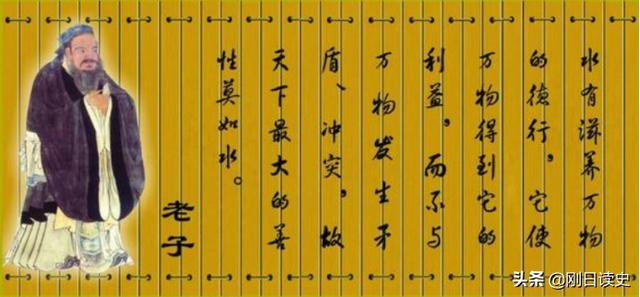 水有滋养万物
的德行，它使
万物得到它的
利益，而不与
万物发生矛
盾、冲突，故
天下最大的善
性莫如水。
老子
头条 @刚日读史